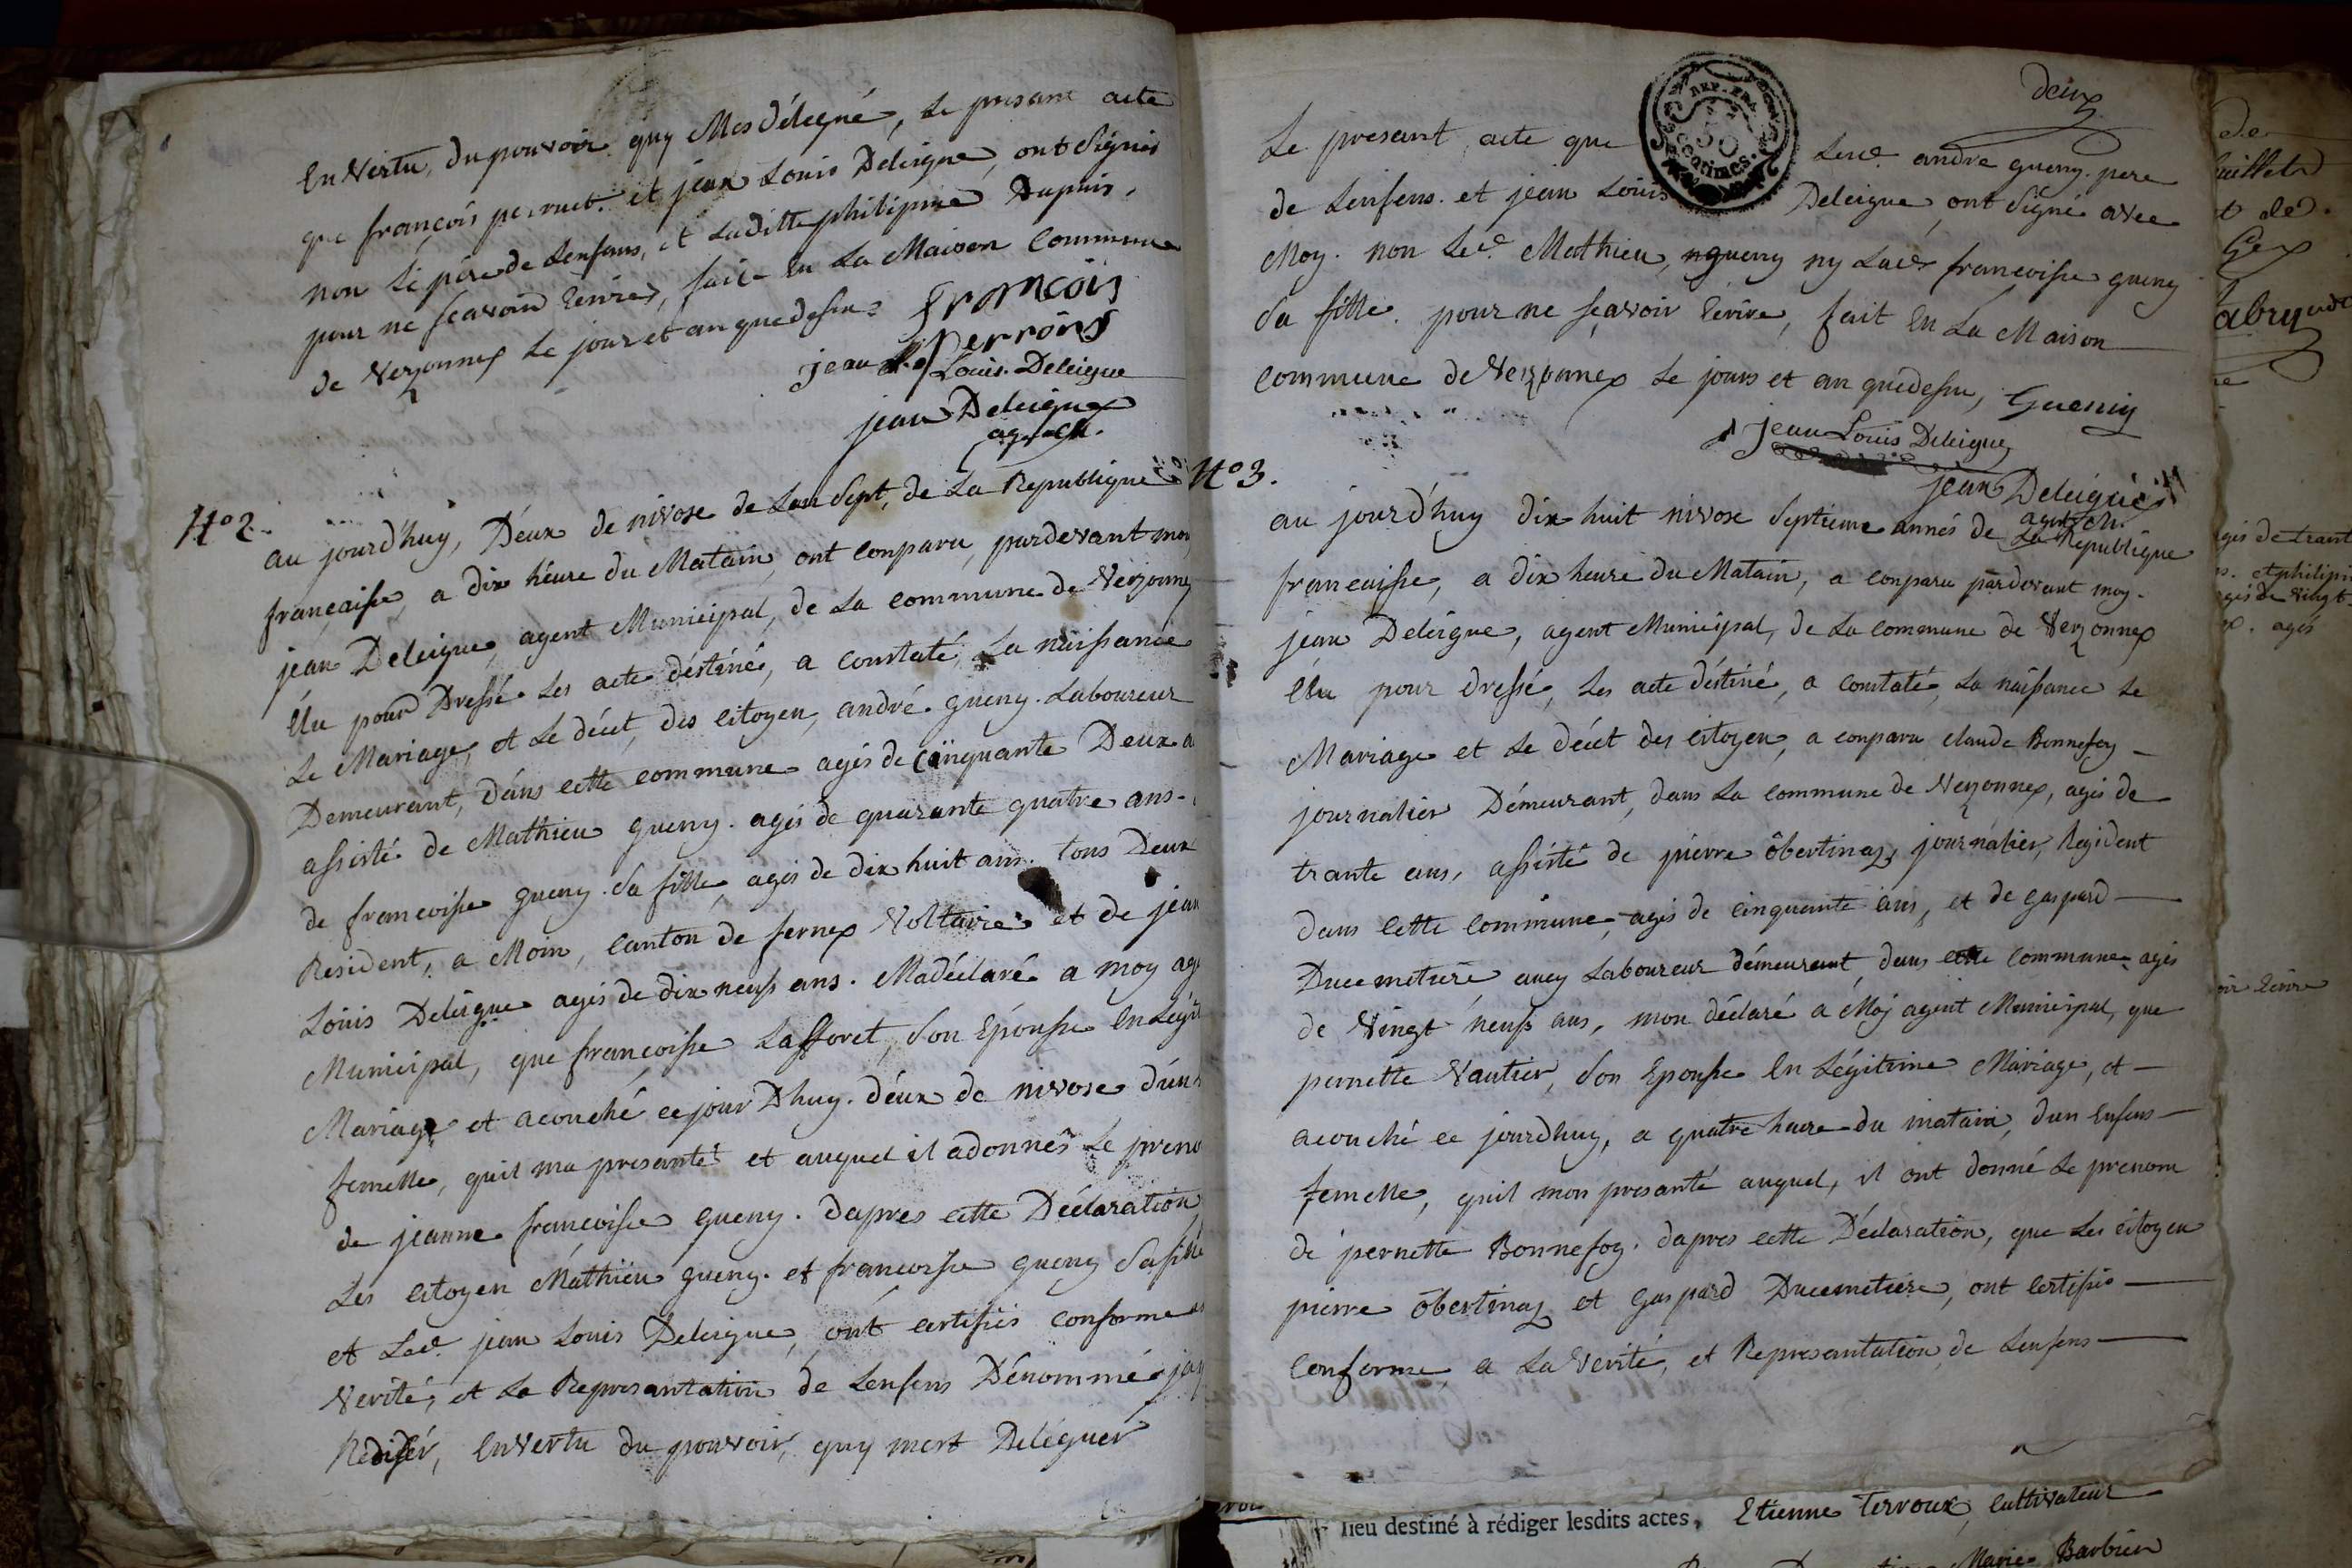 En Vertu, du pouvoir quy Mes délegué, Le presant acte
que françois perruet. et jean Louis Deleigue, ont Signés
non Le père de Lenfans, et Laditte philipine Dupuis,
pour ne scavoir Ecrire, fait En La Maison Commune
de Verzonnex Le jour et an quedessus
françois
perrons
jean Louis Deleigue
jean Deleigue
agent
N° 2.
au jourd'huy, Déux de nivose de Lan Sept, de La Republique
françaisse, a dix héure du Matain, ont Conparu, pardevant moy
jean Deleigue, agent Municipal, de La commune de Verzonnex
Élu pour Dressé Les acte déstiné, a constaté, La naissance
Le Mariage, et Le décet, des Citoyen, andré. gueny. Laboureur
Demeurant, dans cette commune agés de Cinquante Deux
assisté de Mathieu gueny. agés de quarante quatre ans.
de francoisse gueny. Sa fille, agés de dix huit ans. tous Deux
Resident, a Moin, Canton de fernex Voltaire et de jean
Louis Deleigue agés de dix neufs ans. Madéclaré a moy
Municipal, que françoisse Lafforet, Son Épousse En
Mariage et acouché ce jour Dhuy. déux de nivose d'un
femelle, quil ma presanté et auquel il adonnés Le
de jeanne francoisse gueny. dapres cette Déclaration
Les Citoyen Máthieu gueny. et francoisse gueny Sa fille
et Lec. jean Louis Deleigue, ont certifiés conforme
Verité, et La Represantation de Lenfens Dénommé
Rediger, En Vertu du pouvoir, quy mert Deléguér
deux
REP. FRA.
50
centimes.
Le presant acte que Lec. andre gueny. pere
de Lenfens. et jean Louis Deleigue, ont Signé avec
Moy. non Lec. Mathieu, gueny ny Lac. francoisse gueny
Sa fille. pour ne sçavoir Ecrire, fait En La Maison
Commune de Verzonnex Le jours et an quedessu,
Gueniy
jean Louis Deleigue
jean Deleigue
agent
N° 3.
au jourd'huy dix huit nivose Septieme annés de La Republique
francaisse, a dix heure du Matain, a conparu pardevant moy.
jean Deleigue, agent Municipal, de La commune de Verzonnex
Élu pour dressé, Les acte déstiné, a constaté, La naissance Le
Mariage et Le décet des citoyen, a conparu claude Bonnefoy
journalier Démeurant, dans La commune de Verzonnex, agés de
trante ans, assisté de pierre ôbertinaz, journalier, Resident
dans Cette Commune, agés de cinquante ans, et de gaspard
Ducemetiere aucy Laboureur démeurant, dans cette Commune agés
de Vingt neufs ans, mon déclaré a Moj agent Municipal, que
pernette Vautier, Son Epousse En Légitime Mariage, et
acouché ce jourdhuy, a quatre heure du matain, dun Enfens
femelle, quil mon presanté auquel, il ont donné Le prenom
de pernette Bonnefoy. dapres cette Déclaration, que Les citoyen
pierre ôbertinaz et Gaspard Ducemetiere, ont Certifiés
Conforme, a La Verité, et Represantation, de Lenfens
lieu destiné à rédiger lesdits actes, Etienne Tervoux, Cultivateur
Marie Barbier
de
Gex
et philip
agés de Vingt
agés